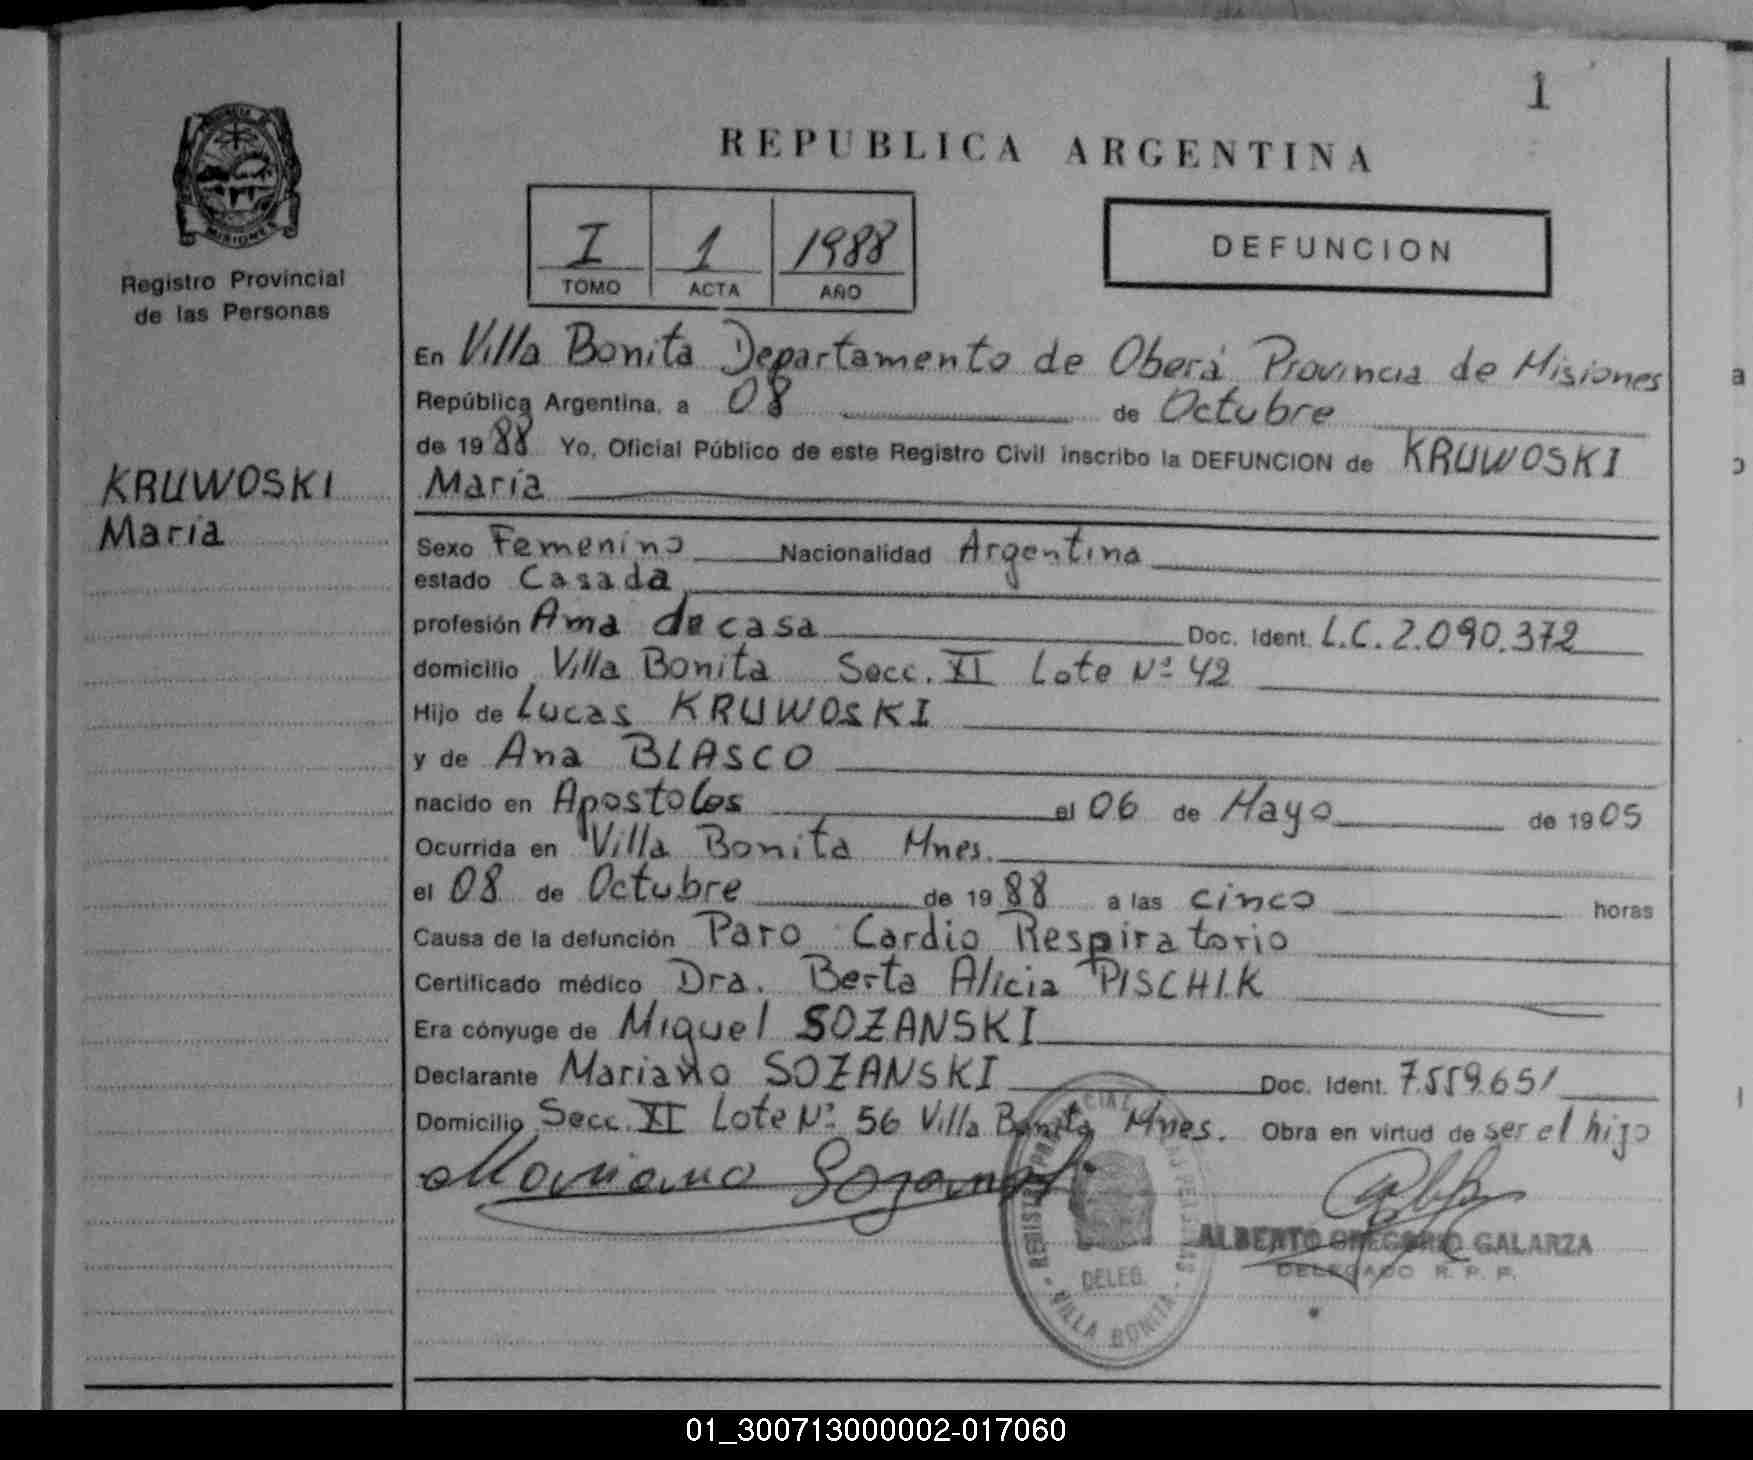 1
REPUBLICA ARGENTINA
MISIONES
Registro Provincial
de las Personas
I 1 1988
TOMO ACTA AÑO
DEFUNCION
En Villa Bonita Departamento de Oberá Provincia de Misiones
República Argentina, a 08 de Octubre
de 1988 Yo, Oficial Público de este Registro Civil inscribo la DEFUNCION de KRUWOSKI
María
KRUWOSKI
María
Sexo Femenino Nacionalidad Argentina
estado Casada
profesión Ama de casa Doc. Ident. L.C. 2.090.372
domicilio Villa Bonita Secc. XI Lote Nº 42
Hijo de Lucas KRUWOSKI
y de Ana BLASCO
nacido en Apostoles el 06 de Mayo de 1905
Ocurrida en Villa Bonita Mnes.
el 08 de Octubre de 1988 a las cinco horas
Causa de la defunción Paro Cardio Respiratorio
Certificado médico Dra. Berta Alicia PISCHIK
Era cónyuge de Miguel SOZANSKI
Declarante Mariano SOZANSKI Doc. Ident. 7.559.651
Domicilio Secc. XI Lote Nº 56 Villa Bonita Mnes. Obra en virtud de ser el hijo
Mariano Sozanski
DELEG.
VILLA BONITA
ALBERTO GREGORIO GALARZA
DELEGADO R. P. P.
01_300713000002-017060